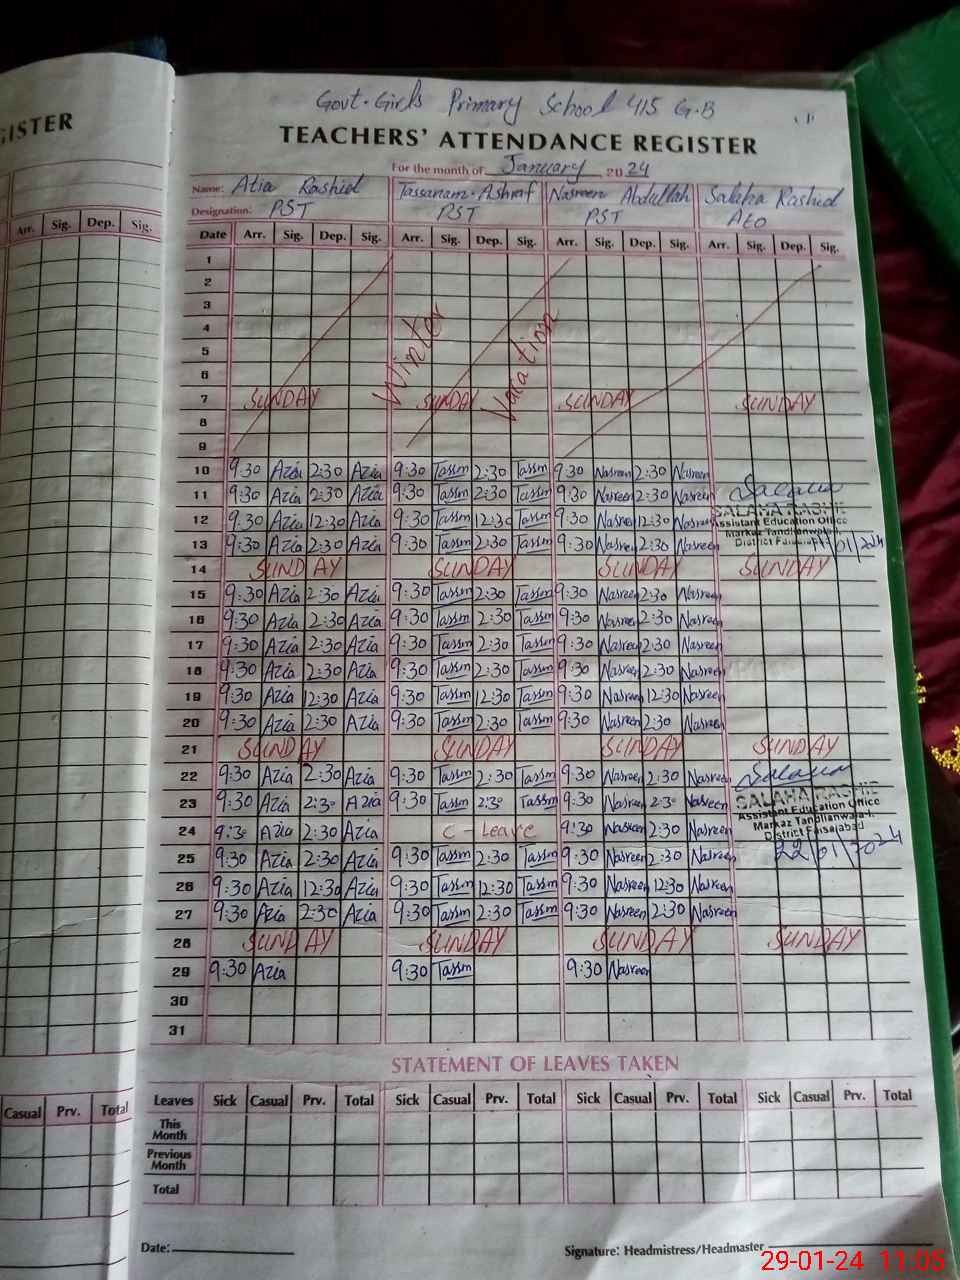 GISTER
Govt. Girls Primary School 415 G.B
TEACHERS' ATTENDANCE REGISTER
For the month of January 2024
Name: Atia Rashid Tassanam Ashraf Nasreen Abdullah Salaha Rashid
Designation: PST PST PST AEO
Arr. Sig. Dep. Sig. Date Arr. Sig. Dep. Sig. Arr. Sig. Dep. Sig. Arr. Sig. Dep. Sig. Arr. Sig. Dep. Sig.
1
2
3
4
5
6
Winter Vacation
7 SUNDAY SUNDAY SUNDAY SUNDAY
8
9
10 9:30 Azia 2:30 Azia 9:30 Tassm 2:30 Tassm 9:30 Nasreen 2:30 Nasreen
11 9:30 Azia 2:30 Azia 9:30 Tassm 2:30 Tassm 9:30 Nasreen 2:30 Nasreen Salaha
12 9:30 Azia 12:30 Azia 9:30 Tassm 12:30 Tassm 9:30 Nasreen 12:30 Nasreen SALAHA RASHID
Assistant Education Office
Markaz Tandlianwala-I,
13 9:30 Azia 2:30 Azia 9:30 Tassm 2:30 Tassm 9:30 Nasreen 2:30 Nasreen District Faisalabad
14 SUNDAY SUNDAY SUNDAY SUNDAY
15 9:30 Azia 2:30 Azia 9:30 Tassm 2:30 Tassm 9:30 Nasreen 2:30 Nasreen
16 9:30 Azia 2:30 Azia 9:30 Tassm 2:30 Tassm 9:30 Nasreen 2:30 Nasreen
17 9:30 Azia 2:30 Azia 9:30 Tassm 2:30 Tassm 9:30 Nasreen 2:30 Nasreen
18 9:30 Azia 2:30 Azia 9:30 Tassm 2:30 Tassm 9:30 Nasreen 2:30 Nasreen
19 9:30 Azia 12:30 Azia 9:30 Tassm 12:30 Tassm 9:30 Nasreen 12:30 Nasreen
20 9:30 Azia 2:30 Azia 9:30 Tassm 2:30 Tassm 9:30 Nasreen 2:30 Nasreen
21 SUNDAY SUNDAY SUNDAY SUNDAY
22 9:30 Azia 2:30 Azia 9:30 Tassm 2:30 Tassm 9:30 Nasreen 2:30 Nasreen Salaha
23 9:30 Azia 2:30 Azia 9:30 Tassm 2:30 Tassm 9:30 Nasreen 2:30 Nasreen SALAHA RASHID
Assistant Education Office
Markaz Tandlianwala-I,
24 9:30 Azia 2:30 Azia C-Leave 9:30 Nasreen 2:30 Nasreen District Faisalabad
25 9:30 Azia 2:30 Azia 9:30 Tassm 2:30 Tassm 9:30 Nasreen 2:30 Nasreen 22/01/2024
26 9:30 Azia 12:30 Azia 9:30 Tassm 12:30 Tassm 9:30 Nasreen 12:30 Nasreen
27 9:30 Azia 2:30 Azia 9:30 Tassm 2:30 Tassm 9:30 Nasreen 2:30 Nasreen
28 SUNDAY SUNDAY SUNDAY SUNDAY
29 9:30 Azia 9:30 Tassm 9:30 Nasreen
30
31
STATEMENT OF LEAVES TAKEN
Casual Prv. Total Leaves Sick Casual Prv. Total Sick Casual Prv. Total Sick Casual Prv. Total Sick Casual Prv. Total
This Month
Previous Month
Total
Date: Signature: Headmistress/Headmaster
29-01-24 11:05